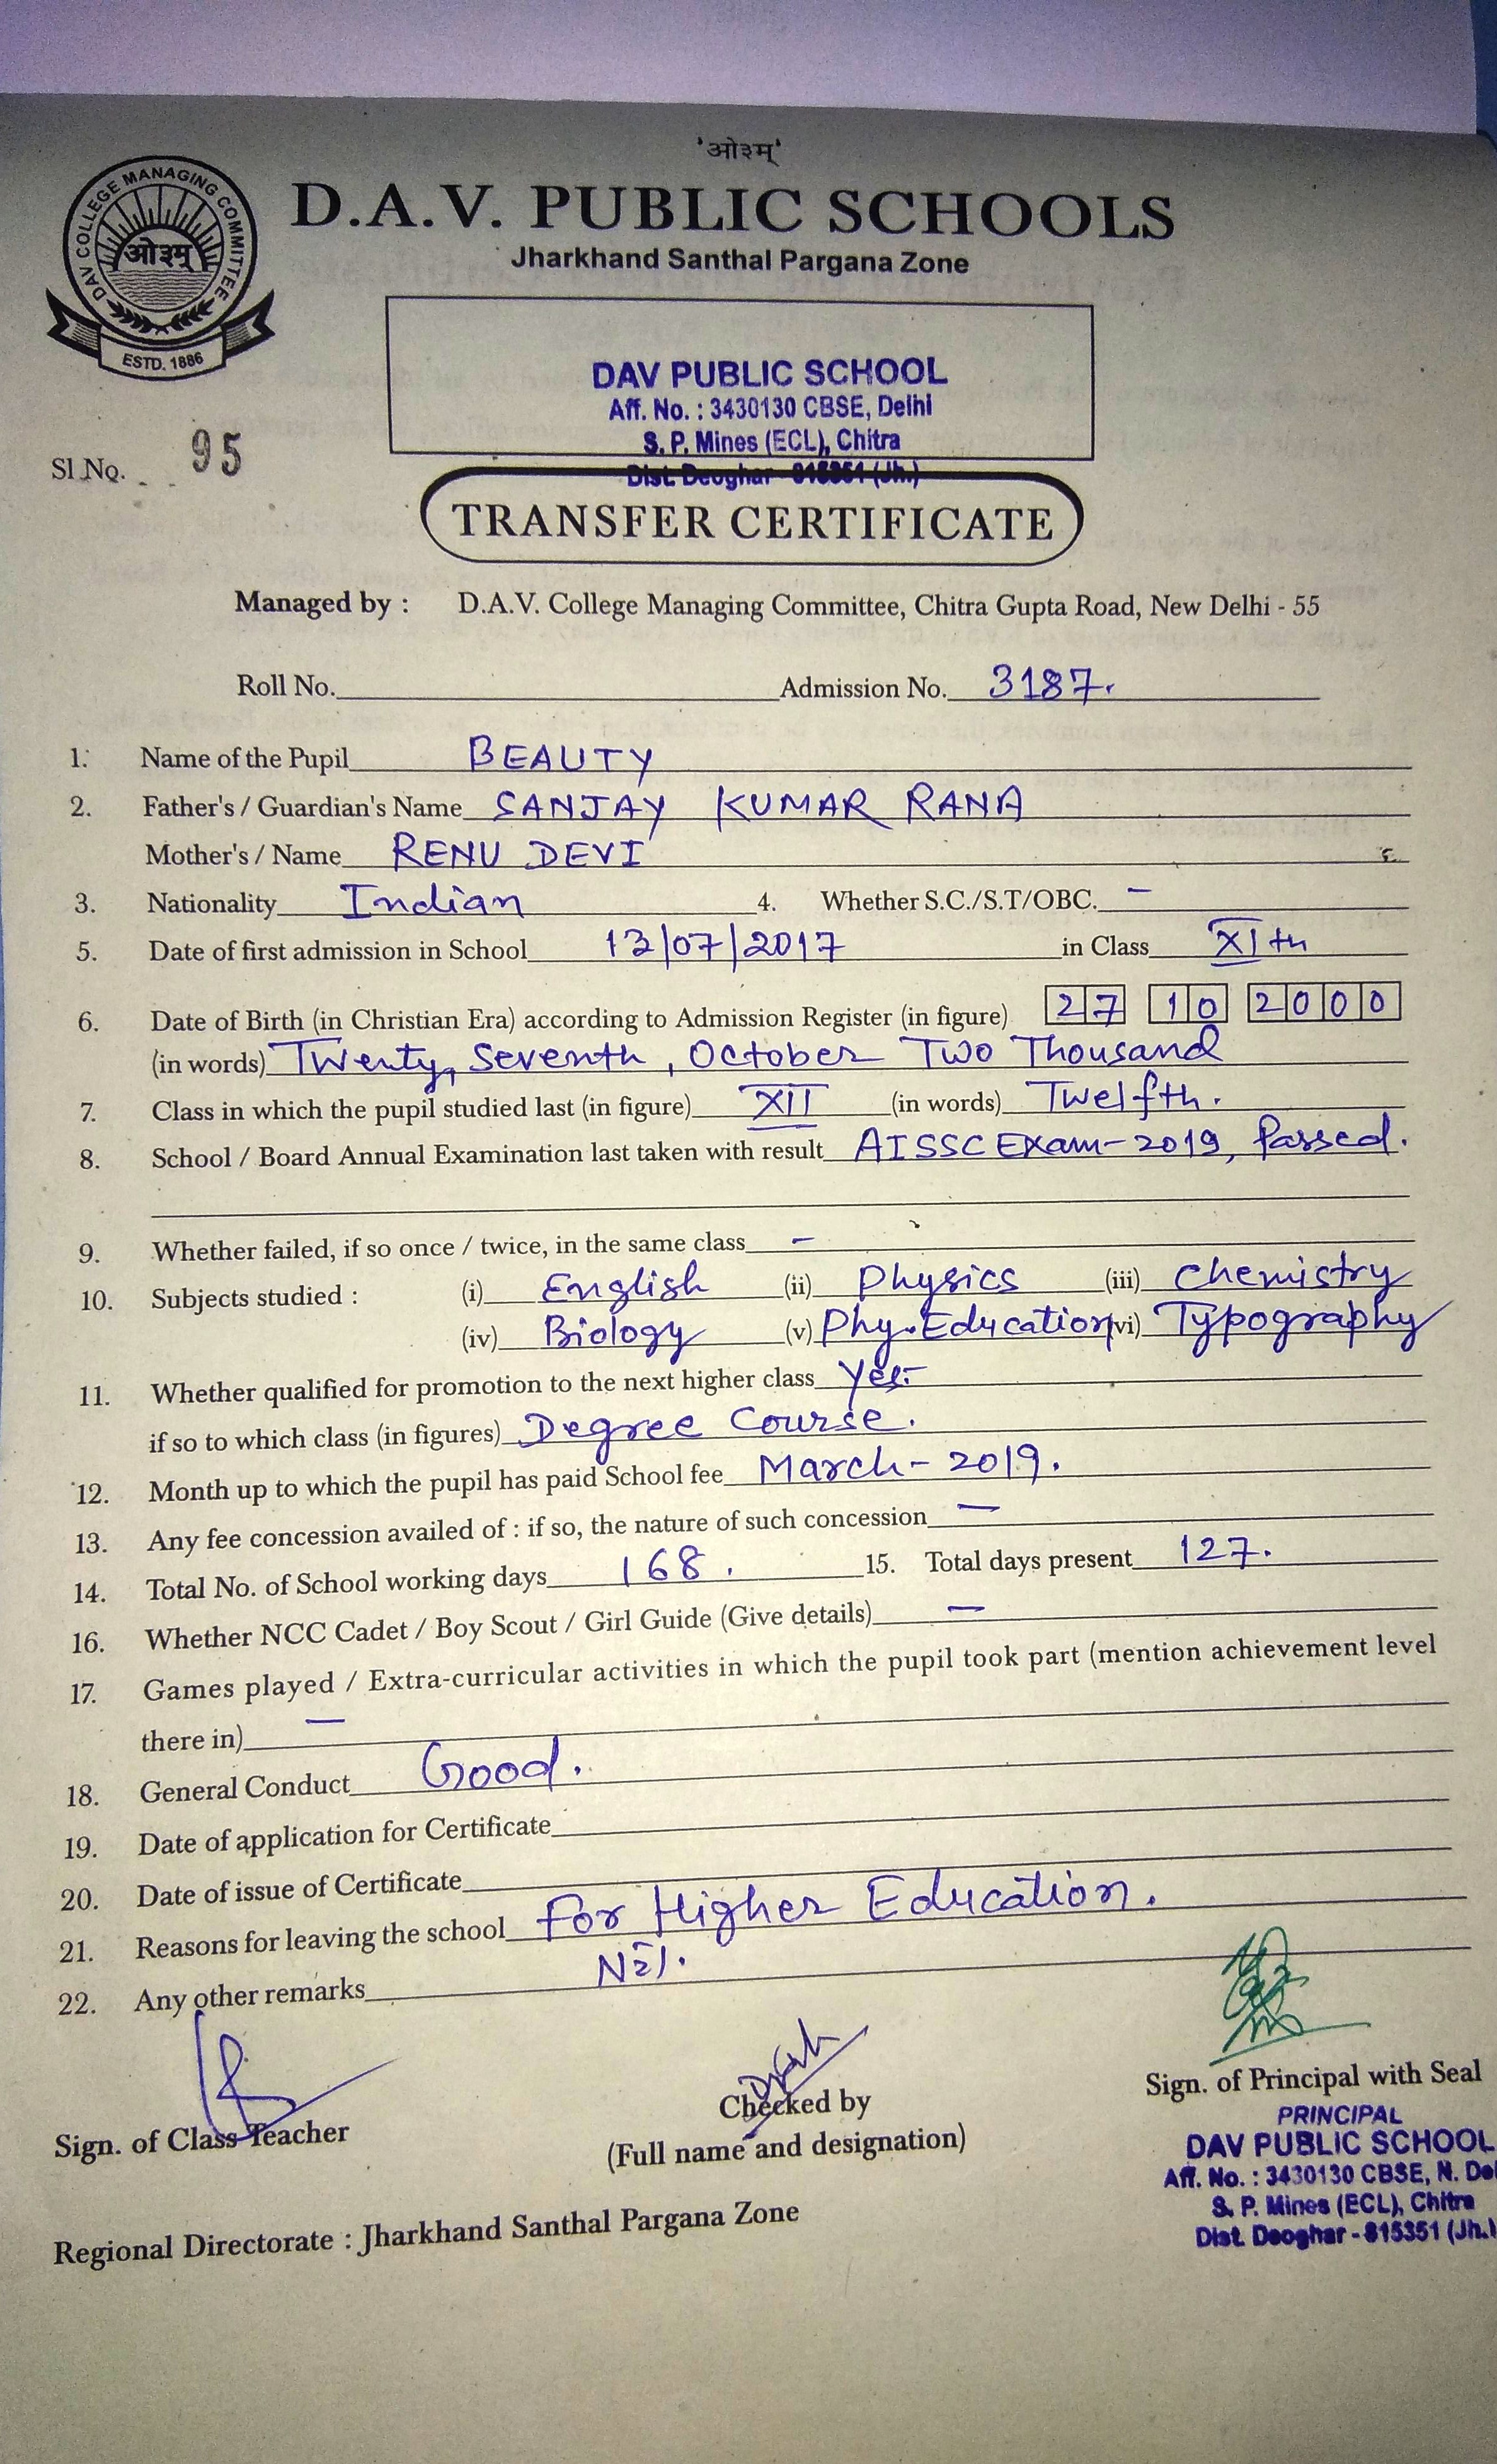 'ओ३म्'
DAV COLLEGE MANAGING COMMITTEE
ओ३म्
ESTD. 1886
D.A.V. PUBLIC SCHOOLS
Jharkhand Santhal Pargana Zone
DAV PUBLIC SCHOOL
Aff. No. : 3430130 CBSE, Delhi
S. P. Mines (ECL), Chitra
Dist. Deoghar - 815351 (Jh.)
Sl No. 95
TRANSFER CERTIFICATE
Managed by : D.A.V. College Managing Committee, Chitra Gupta Road, New Delhi - 55
Roll No. Admission No. 3187.
1. Name of the Pupil BEAUTY
2. Father's / Guardian's Name SANJAY KUMAR RANA
Mother's / Name RENU DEVI
3. Nationality Indian 4. Whether S.C./S.T/OBC. –
5. Date of first admission in School 13/07/2017 in Class XIth
6. Date of Birth (in Christian Era) according to Admission Register (in figure) 27 10 2000
(in words) Twenty, Seventh, October Two Thousand
7. Class in which the pupil studied last (in figure) XII (in words) Twelfth.
8. School / Board Annual Examination last taken with result AISSC Exam-2019, Passed.
9. Whether failed, if so once / twice, in the same class –
10. Subjects studied : (i) English (ii) Physics (iii) Chemistry
(iv) Biology (v) Phy. Education (vi) Typography
11. Whether qualified for promotion to the next higher class Yes.
if so to which class (in figures) Degree Course.
12. Month up to which the pupil has paid School fee March-2019.
13. Any fee concession availed of : if so, the nature of such concession –
14. Total No. of School working days 168. 15. Total days present 127.
16. Whether NCC Cadet / Boy Scout / Girl Guide (Give details) –
17. Games played / Extra-curricular activities in which the pupil took part (mention achievement level
there in) –
18. General Conduct Good.
19. Date of application for Certificate
20. Date of issue of Certificate
21. Reasons for leaving the school For Higher Education.
22. Any other remarks Nil.
Sign. of Class Teacher
Checked by
(Full name and designation)
Sign. of Principal with Seal
PRINCIPAL
DAV PUBLIC SCHOOL
Aff. No. : 3430130 CBSE, N. Del
S. P. Mines (ECL), Chitra
Dist. Deoghar - 815351 (Jh.)
Regional Directorate : Jharkhand Santhal Pargana Zone